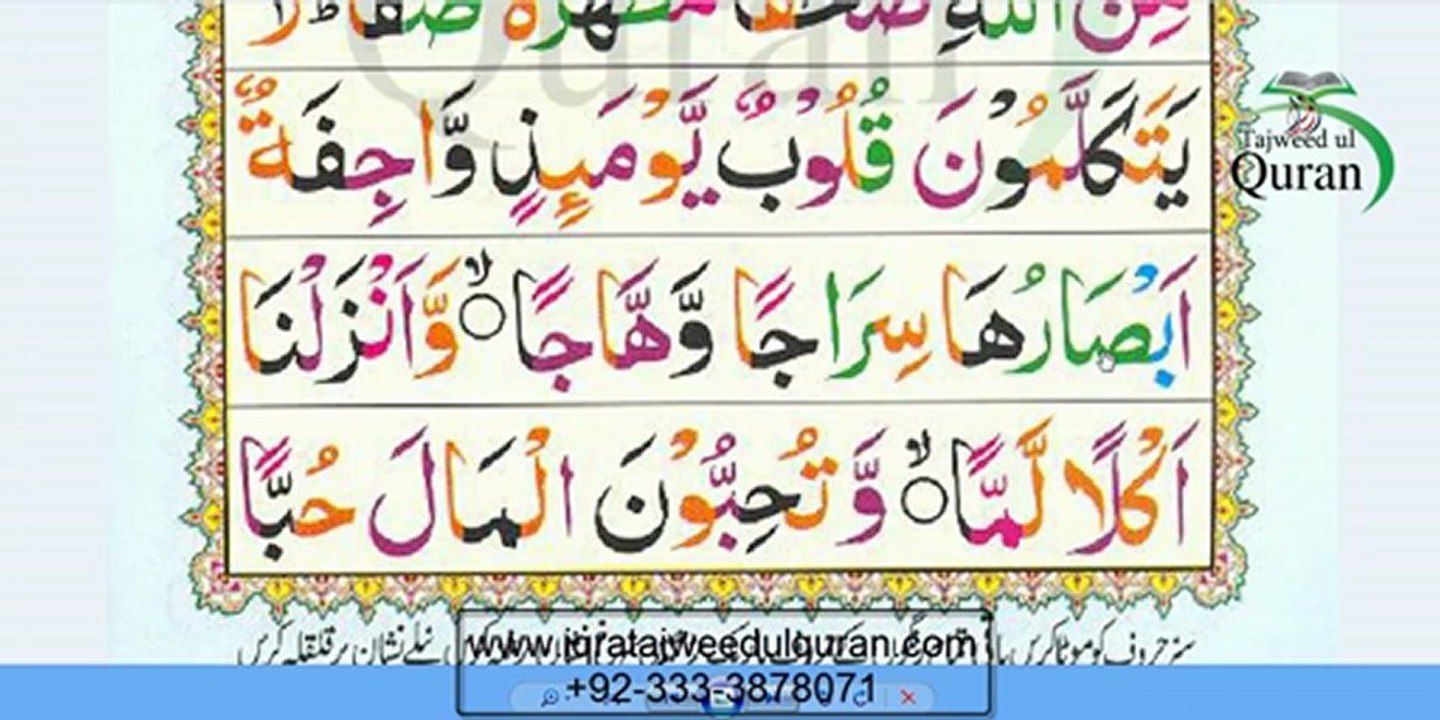 مِّنَ اللّٰهِ
يَتَكَلَّمُوْنَ قُلُوْبٌ يَّوْمَىِٕذٍ وَّاجِفَةٌ
اَبْصَارُهَا سِرَاجًا وَّهَّاجًا ۙ وَّاَنْزَلْنَا
اَكْلًا لَّمًّا ۙ وَّتُحِبُّوْنَ الْمَالَ حُبًّا
Tajweed ul
Quran
سبز حروف کو موٹا کریں
نیلے نشان پر قلقلہ کریں
www.iqratajweedulquran.com
+92-333-3878071